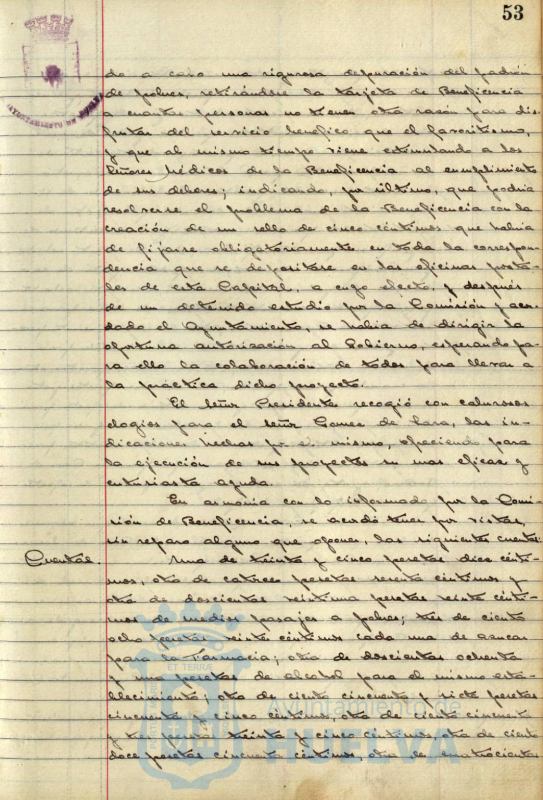 53
AYUNTAMIENTO DE HUELVA
do a cabo una rigurosa depuración del padrón
de pobres, retirándose la tarjeta de Beneficencia
a cuantas personas no tienen otra razón para dis-
frutar del servicio benéfico que el favoritismo,
y que al mismo tiempo viene estimulando a los
Señores Médicos de la Beneficencia al cumplimiento
de sus deberes; indicando, por último, que podria
resolverse el problema de la Beneficencia con la
creación de un sello de cinco céntimos que habia
de fijarse obligatoriamente en toda la correspon-
dencia que se depositase en las oficinas posta-
les de esta Capital, a cuyo efecto, y después
de un detenido estudio por la Comisión y acor-
dado el Ayuntamiento, se habia de dirigir la
oportuna autorización al Gobierno, esperando pa-
ra ello la colaboración de todos para llevar a
la práctica dicho proyecto.
El Señor Presidente recogió con calurosos
elogios para el Señor Gomez de Lara, las in-
dicaciones hechas por el mismo, ofreciendo para
la ejecución de sus proyectos su mas eficaz y
entusiasta ayuda.
En armonia con lo informado por la Comi-
sión de Beneficencia, se acordó tener por vistas,
sin reparo alguno que oponer, las siguientes cuentas:
Cuentas. Una de treinta y cinco pesetas diez cénti-
mos, otra de catorce pesetas sesenta céntimos y
otra de doscientas veintiuna pesetas veinte cénti-
mos de medios pasajes a pobres; tres de ciento
ocho pesetas veinte céntimos cada una de azucar
para la Farmacia; otra de doscientas ochenta
y una pesetas de alcohol para el mismo esta-
blecimiento; otra de ciento cincuenta y siete pesetas
cincuenta y cinco céntimos, otra de ciento cincuenta
y tres pesetas treinta y cinco céntimos, otra de ciento
doce pesetas cincuenta céntimos, otra de cuatrocientas
ET TERRÆ
Ayuntamiento de
HUELVA